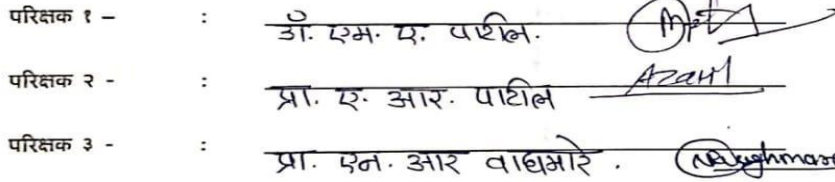 परिक्षक १ – : डॉ. एम. ए. पाटील.
परिक्षक २ - : प्रा. ए. आर. पाटील
परिक्षक ३ - : प्रा. एन. आर वाघमारे.